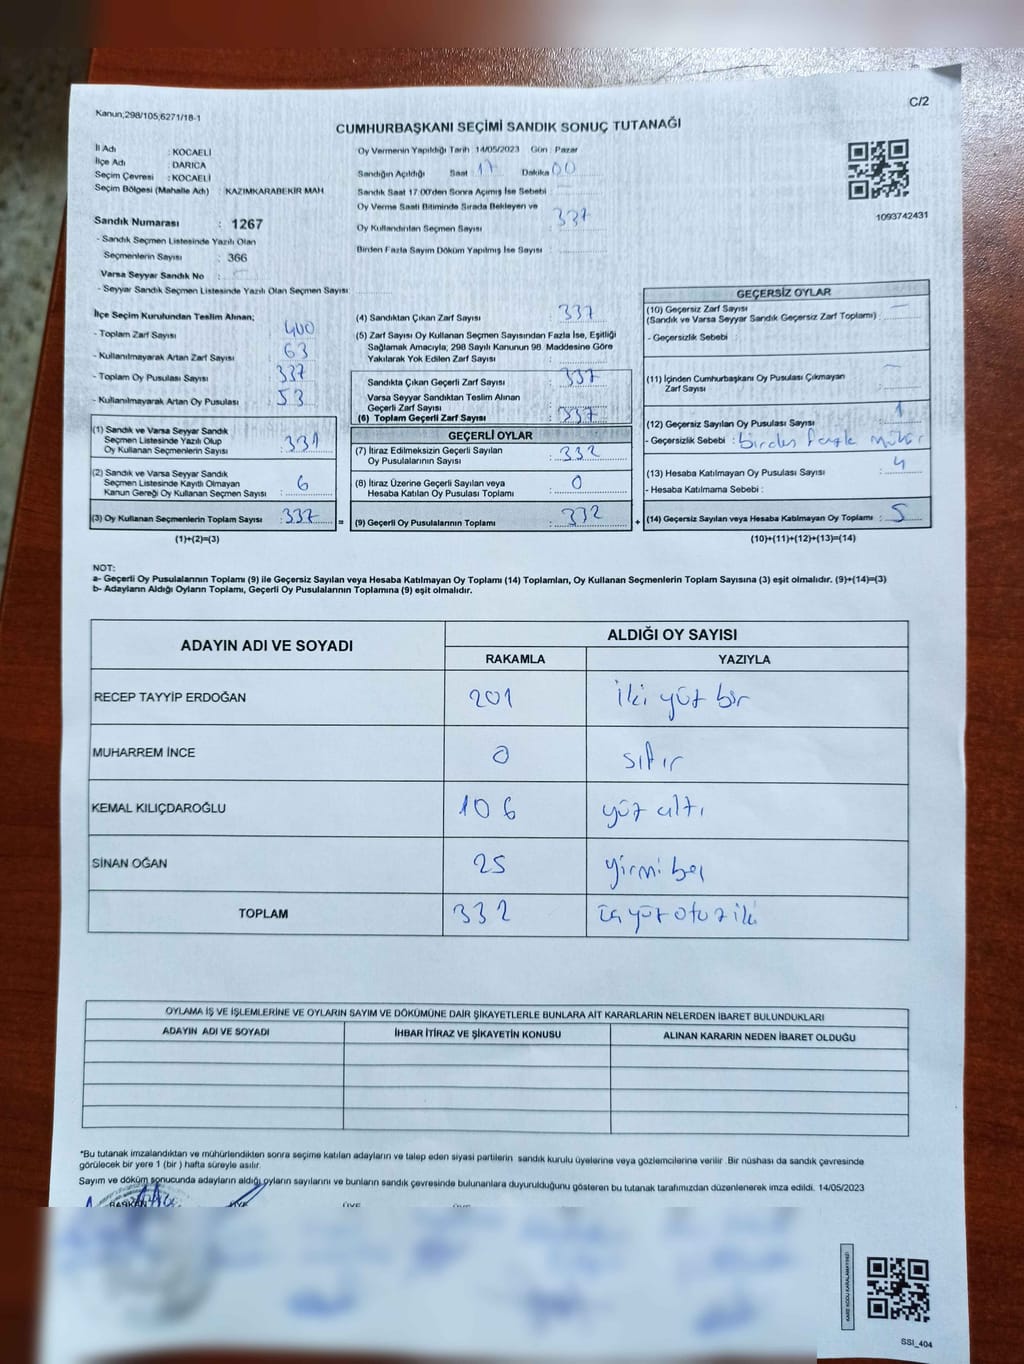 Kanun;298/105;6271/18-1
C/2
CUMHURBAŞKANI SEÇİMİ SANDIK SONUÇ TUTANAĞI
İl Adı : KOCAELİ
İlçe Adı : DARICA
Seçim Çevresi : KOCAELİ
Seçim Bölgesi (Mahalle Adı) : KAZIMKARABEKİR MAH.
Sandık Numarası : 1267
- Sandık Seçmen Listesinde Yazılı Olan
Seçmenlerin Sayısı : 366
Varsa Seyyar Sandık No :
- Seyyar Sandık Seçmen Listesinde Yazılı Olan Seçmen Sayısı:
Oy Vermenin Yapıldığı Tarih : 14/05/2023 Gün : Pazar
Sandığın Açıldığı Saat : 17 Dakika : 00
Sandık Saat 17:00'den Sonra Açılmış İse Sebebi :
Oy Verme Saati Bitiminde Sırada Bekleyen ve
Oy Kullandırılan Seçmen Sayısı : 337
Birden Fazla Sayım Döküm Yapılmış İse Sayısı :
1093742431
İlçe Seçim Kurulundan Teslim Alınan;
- Toplam Zarf Sayısı : 400
- Kullanılmayarak Artan Zarf Sayısı : 63
- Toplam Oy Pusulası Sayısı : 337
- Kullanılmayarak Artan Oy Pusulası : 53
(1) Sandık ve Varsa Seyyar Sandık
Seçmen Listesinde Yazılı Olup
Oy Kullanan Seçmenlerin Sayısı : 331
(2) Sandık ve Varsa Seyyar Sandık
Seçmen Listesinde Kayıtlı Olmayan
Kanun Gereği Oy Kullanan Seçmen Sayısı : 6
(3) Oy Kullanan Seçmenlerin Toplam Sayısı : 337
(1)+(2)=(3)
=
(4) Sandıktan Çıkan Zarf Sayısı : 337
(5) Zarf Sayısı Oy Kullanan Seçmen Sayısından Fazla İse, Eşitliği
Sağlamak Amacıyla; 298 Sayılı Kanunun 98. Maddesine Göre
Yakılarak Yok Edilen Zarf Sayısı :
Sandıkta Çıkan Geçerli Zarf Sayısı : 337
Varsa Seyyar Sandıktan Teslim Alınan
Geçerli Zarf Sayısı :
(6) Toplam Geçerli Zarf Sayısı : 337
GEÇERLİ OYLAR
(7) İtiraz Edilmeksizin Geçerli Sayılan
Oy Pusulalarının Sayısı : 332
(8) İtiraz Üzerine Geçerli Sayılan veya
Hesaba Katılan Oy Pusulası Toplamı : 0
(9) Geçerli Oy Pusulalarının Toplamı : 332
+
GEÇERSİZ OYLAR
(10) Geçersiz Zarf Sayısı
(Sandık ve Varsa Seyyar Sandık Geçersiz Zarf Toplamı) : —
- Geçersizlik Sebebi :
(11) İçinden Cumhurbaşkanı Oy Pusulası Çıkmayan
Zarf Sayısı : —
(12) Geçersiz Sayılan Oy Pusulası Sayısı : 1
- Geçersizlik Sebebi : birden fazla mühür
(13) Hesaba Katılmayan Oy Pusulası Sayısı : 4
- Hesaba Katılmama Sebebi :
(14) Geçersiz Sayılan veya Hesaba Katılmayan Oy Toplamı : 5
(10)+(11)+(12)+(13)=(14)
NOT:
a- Geçerli Oy Pusulalarının Toplamı (9) ile Geçersiz Sayılan veya Hesaba Katılmayan Oy Toplamı (14) Toplamları, Oy Kullanan Seçmenlerin Toplam Sayısına (3) eşit olmalıdır. (9)+(14)=(3)
b- Adayların Aldığı Oyların Toplamı, Geçerli Oy Pusulalarının Toplamına (9) eşit olmalıdır.
ADAYIN ADI VE SOYADI
ALDIĞI OY SAYISI
RAKAMLA YAZIYLA
RECEP TAYYİP ERDOĞAN 201 iki yüz bir
MUHARREM İNCE 0 sıfır
KEMAL KILIÇDAROĞLU 106 yüz altı
SİNAN OĞAN 25 yirmi beş
TOPLAM 332 üç yüz otuz iki
OYLAMA İŞ VE İŞLEMLERİNE VE OYLARIN SAYIM VE DÖKÜMÜNE DAİR ŞİKAYETLERLE BUNLARA AİT KARARLARIN NELERDEN İBARET BULUNDUKLARI
ADAYIN ADI VE SOYADI İHBAR İTİRAZ VE ŞİKAYETİN KONUSU ALINAN KARARIN NEDEN İBARET OLDUĞU
*Bu tutanak imzalandıktan ve mühürlendikten sonra seçime katılan adayların ve talep eden siyasi partilerin sandık kurulu üyelerine veya gözlemcilerine verilir. Bir nüshası da sandık çevresinde
görülecek bir yere 1 (bir) hafta süreyle asılır.
Sayım ve döküm sonucunda adayların aldığı oyların sayılarını ve bunların sandık çevresinde bulunanlara duyurulduğunu gösteren bu tutanak tarafımızdan düzenlenerek imza edildi. 14/05/2023
BAŞKAN ÜYE ÜYE ÜYE
KARE KODU KARALAMAYINIZ!
SSI_404